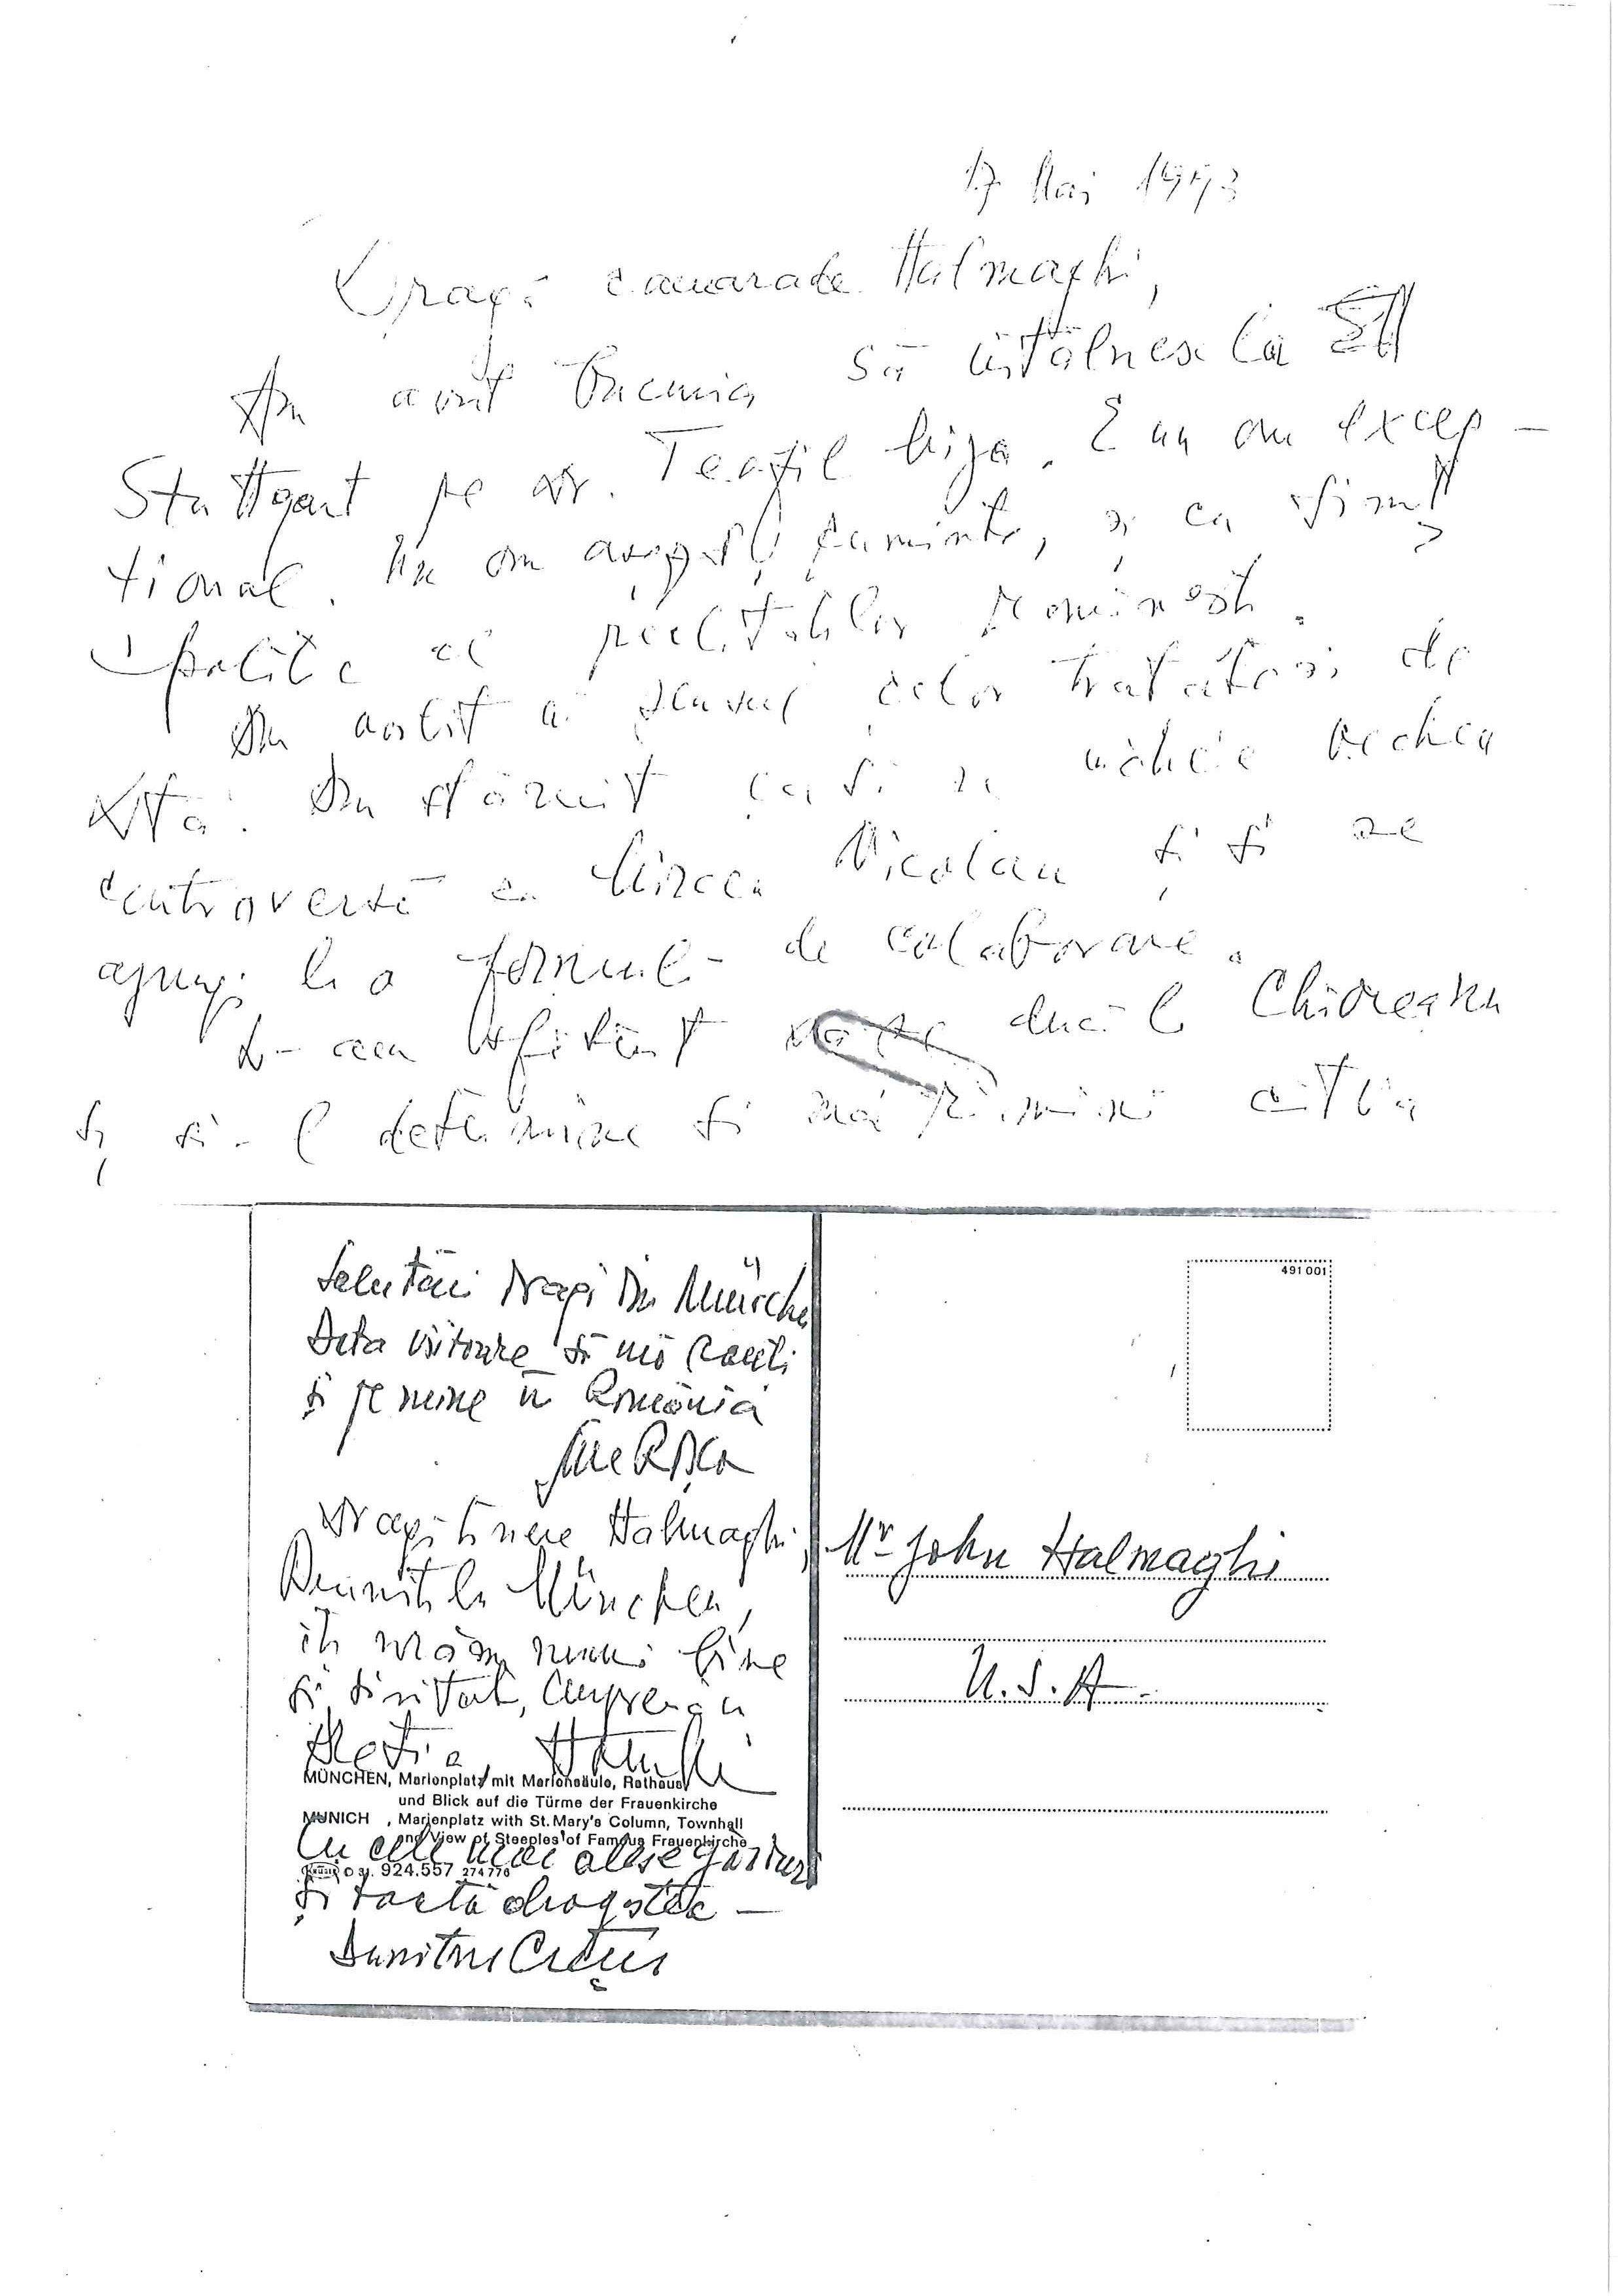 17 Mai 1993
Dragă camarade Halmaghi,
Am avut bucuria să întâlnesc la
Stuttgart pe dr. Teofil Mija. E un om excep-
țional. Un om așezat, cuminte, și cu simț
politic al realităților românești.
Am vorbit a planul celor tratate și de
Dta. Am stăruit ca să se lichideze vechea
controversă cu Mircea Nicolau și să se
ajungă la o formulă de colaborare.
L-am sfătuit să se ducă la Chioreanu
și să-l determine să mai rămână
Salutări dragi din München
Data viitoare să mă cauți
și pe mine în România
Dragă tinere Halmaghi,
Reuniți la München,
îți urăm numai bine
și sănătate, împreună
Horia
MÜNCHEN, Marienplatz mit Mariensäule, Rathaus
und Blick auf die Türme der Frauenkirche
MUNICH , Marienplatz with St. Mary's Column, Townhall
and View of Steeples of Famous Frauenkirche
Cu cele mai alese gânduri
924.557 274776
și toată dragostea —
Dumitru
491 001
Mr John Halmaghi
U.S.A.